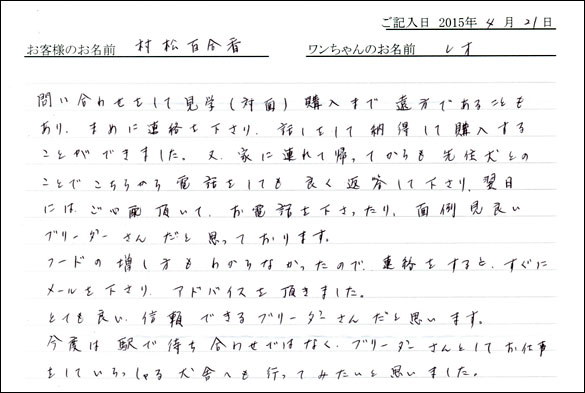 ご記入日 2015年 4 月 21日
お客様のお名前 村松百合香 ワンちゃんのお名前 レオ
問い合わせをして見学(対面)購入まで 遠方であることも
あり、まめに連絡を下さり、話しをして納得して購入する
ことができました。又、家に連れて帰ってからも先住犬との
ことでこちらから電話をしても良く返答して下さり、翌日
には、ご心配頂いて、お電話を下さったり、面倒見良い
ブリーダーさんだと思っております。
フードの増し方もわからなかったので、連絡をすると、すぐに
メールを下さり、アドバイスを頂きました。
とても良い、信頼できるブリーダーさんだと思います。
今度は駅で待ち合わせではなく、ブリーダーさんとしてお仕事
をしていらっしゃる犬舎へも行ってみたいと思いました。